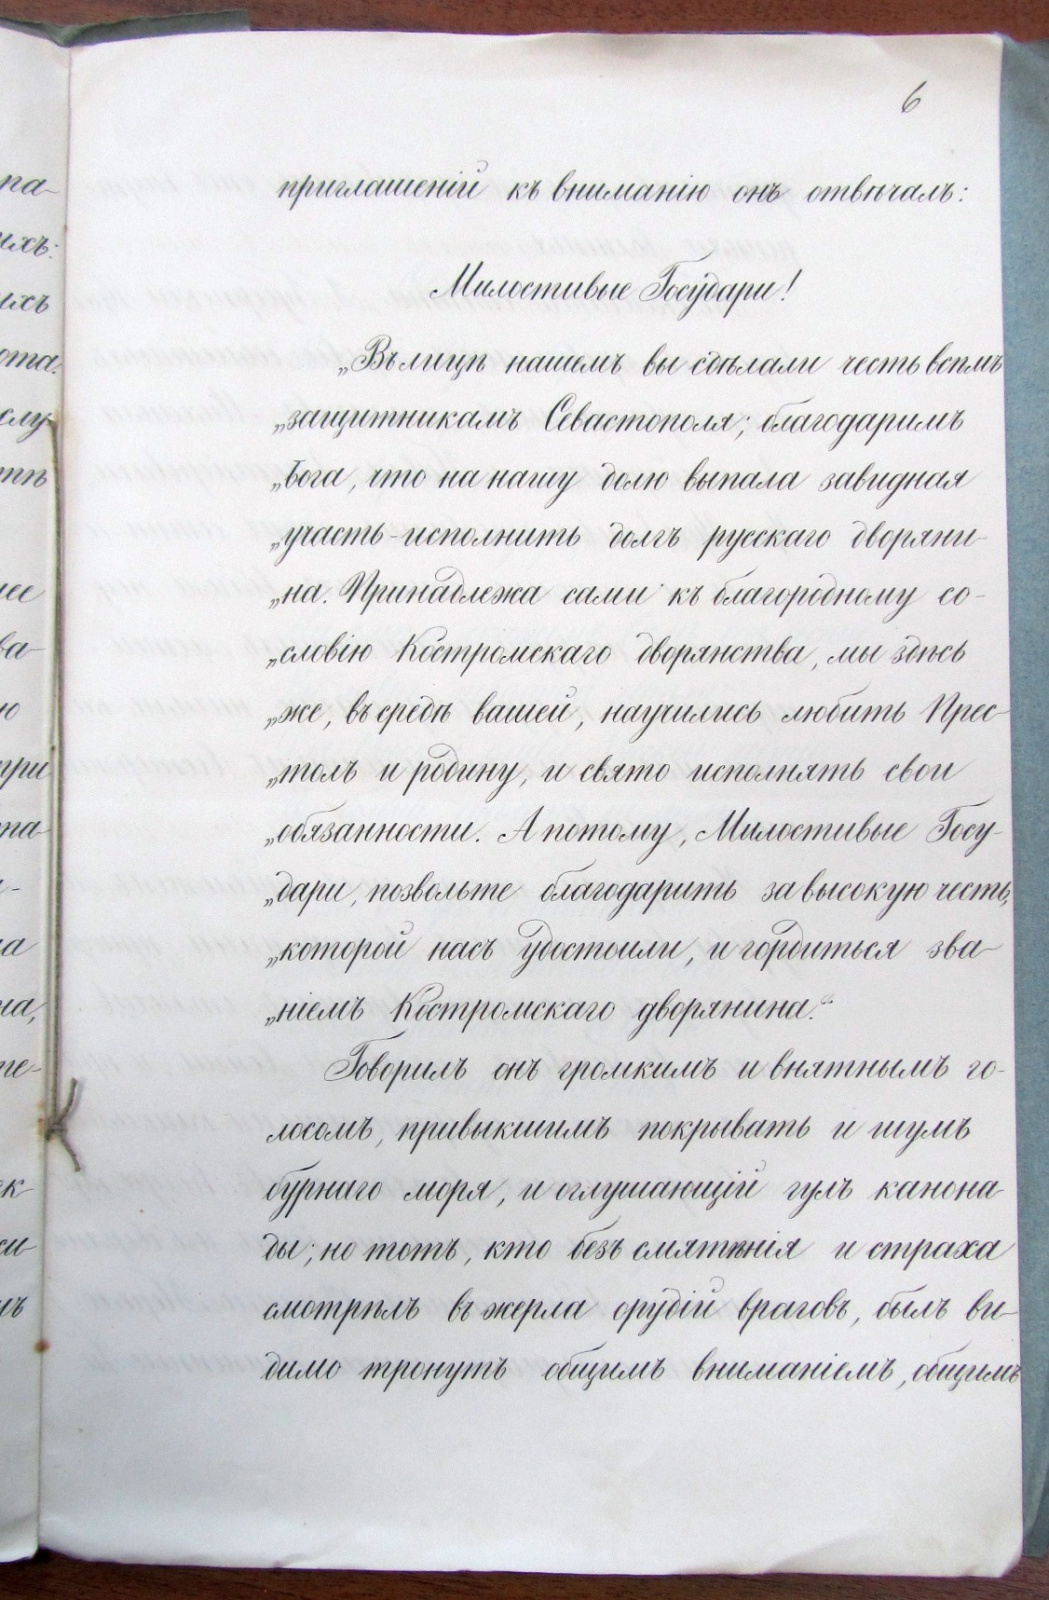 6
приглашеній къ вниманію онъ отвѣчалъ:
Милостивые Государи!
„Въ лицѣ нашемъ вы сдѣлали честь всѣмъ
„защитникамъ Севастополя; благодаримъ
„Бога, что на нашу долю выпала завидная
„участь-исполнить долгъ русскаго дворяни-
„на. Принадлежа сами къ благородному со-
„словію Костромскаго дворянства, мы здѣсь
„же, въ средѣ вашей, научились любить Прес-
„толъ и родину, и свято исполнять свои
„обязанности. А потому, Милостивые Госу-
„дари, позвольте благодарить за высокую честь,
„которой насъ удостоили, и гордиться зва-
„ніемъ Костромскаго дворянина.“
Говорилъ онъ громкимъ и внятнымъ го-
лосомъ, привыкшимъ покрывать и шумъ
бурнаго моря, и оглушающій гулъ канона-
ды; но тотъ, кто безъ смятѣнія и страха
смотрѣлъ въ жерла орудій враговъ, былъ ви-
димо тронутъ общимъ вниманіемъ, общимъ